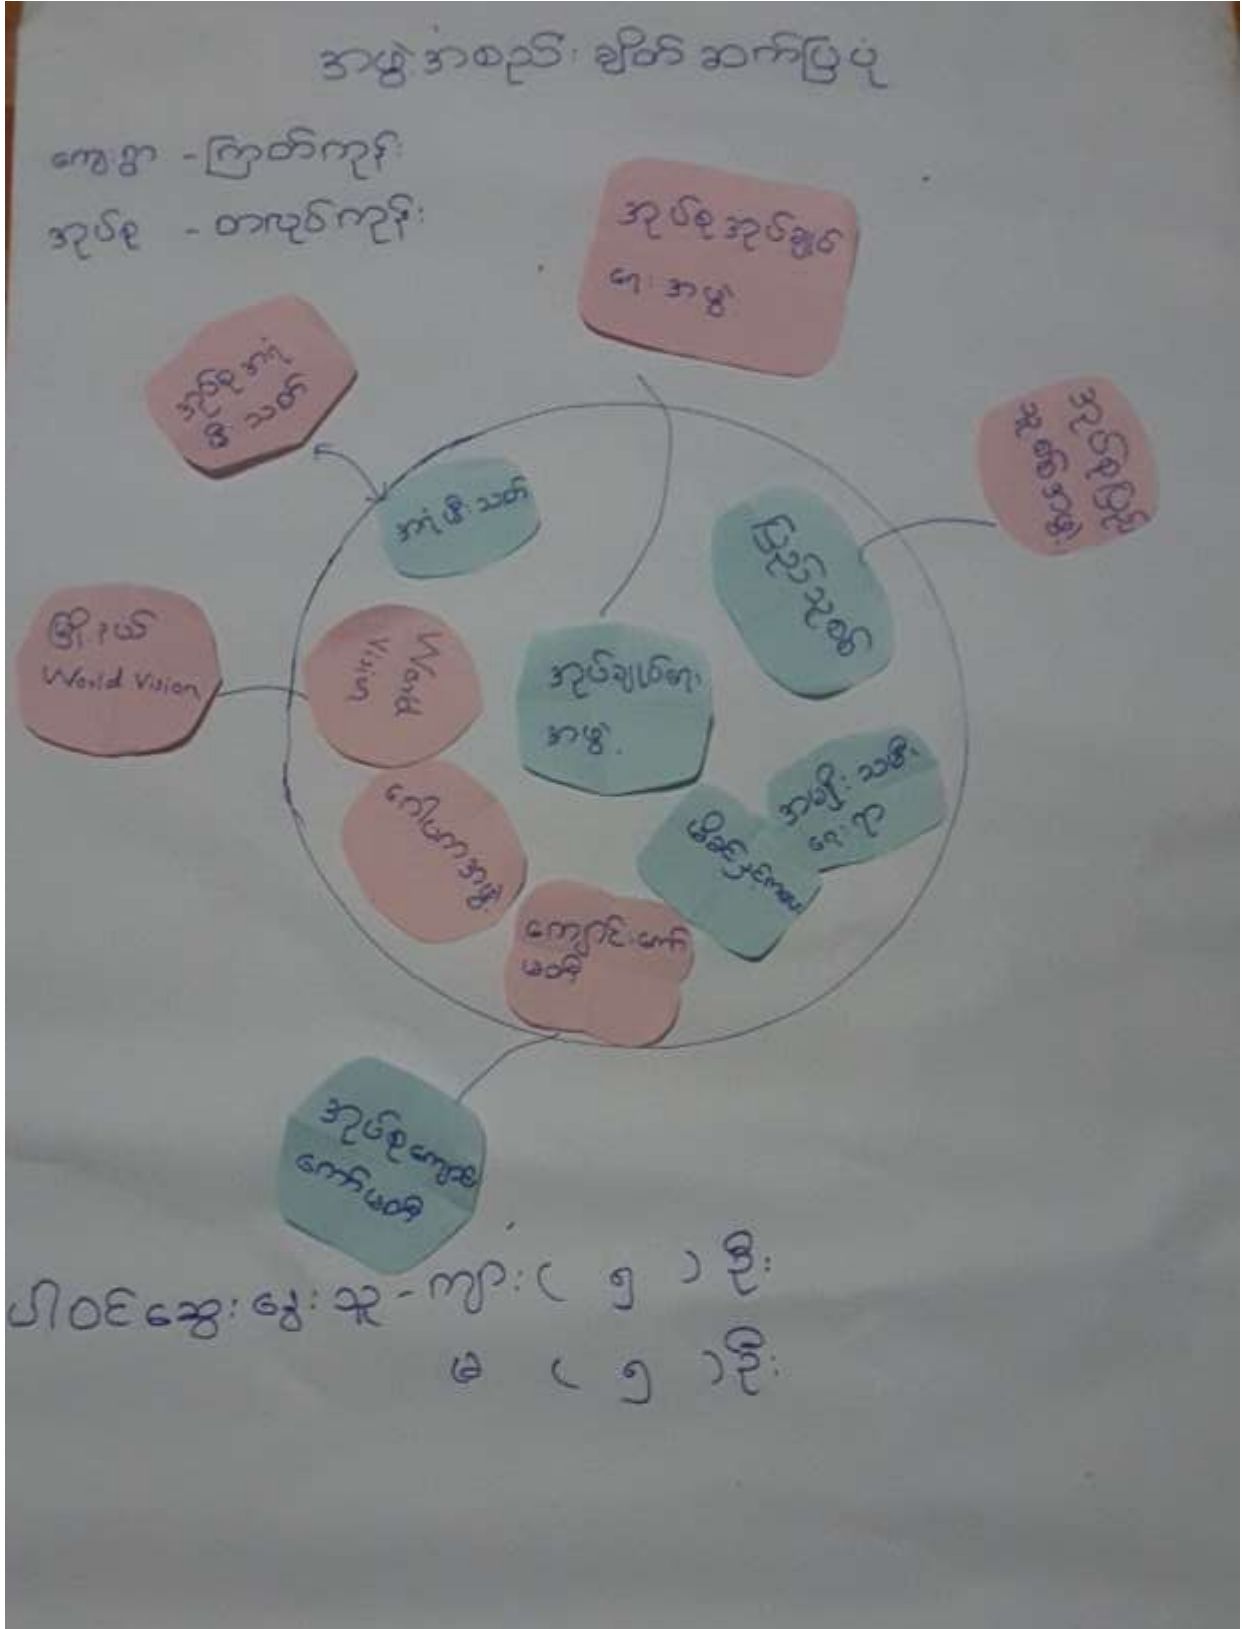 အဖွဲ့အစည်း ချိတ်ဆက်ပြပုံ
ကျေးရွာ - ကြတ်ကုန်း
အုပ်စု - တလုပ်ကုန်း
အုပ်စုအုပ်ချုပ်
ရေးအဖွဲ့
အုပ်စုအရံ
မီးသတ်
အုပ်စုပြည်
သူ့စစ်အဖွဲ့
အရံမီးသတ်
ပြည်သူ့စစ်
မြို့နယ်
World Vision
World
Vision
အုပ်ချုပ်ရေး
အဖွဲ့
အမျိုးသမီး
ရေးရာ
မိခင်နှင့်ကလေး
ဂေါပကအဖွဲ့
ကျောင်းကော်
မတီ
အုပ်စုကျောင်း
ကော်မတီ
ပါဝင်ဆွေးနွေးသူ - ကျား ( ၅ ) ဦး
မ ( ၅ ) ဦး